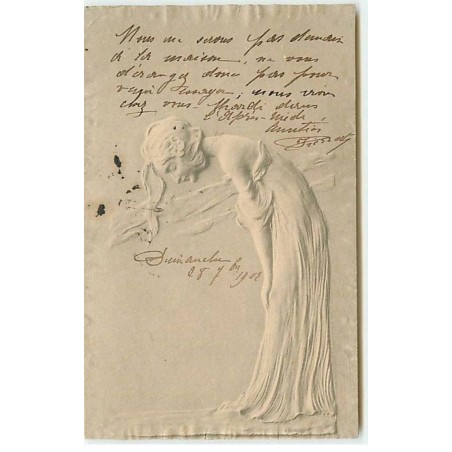 Nous ne serons pas demain
à la maison, ne vous
dérangez donc pas pour
venir ; nous irons
chez vous Mardi dans
l'Après-midi,
Amitiés
Dimanche
28 7bre 1902